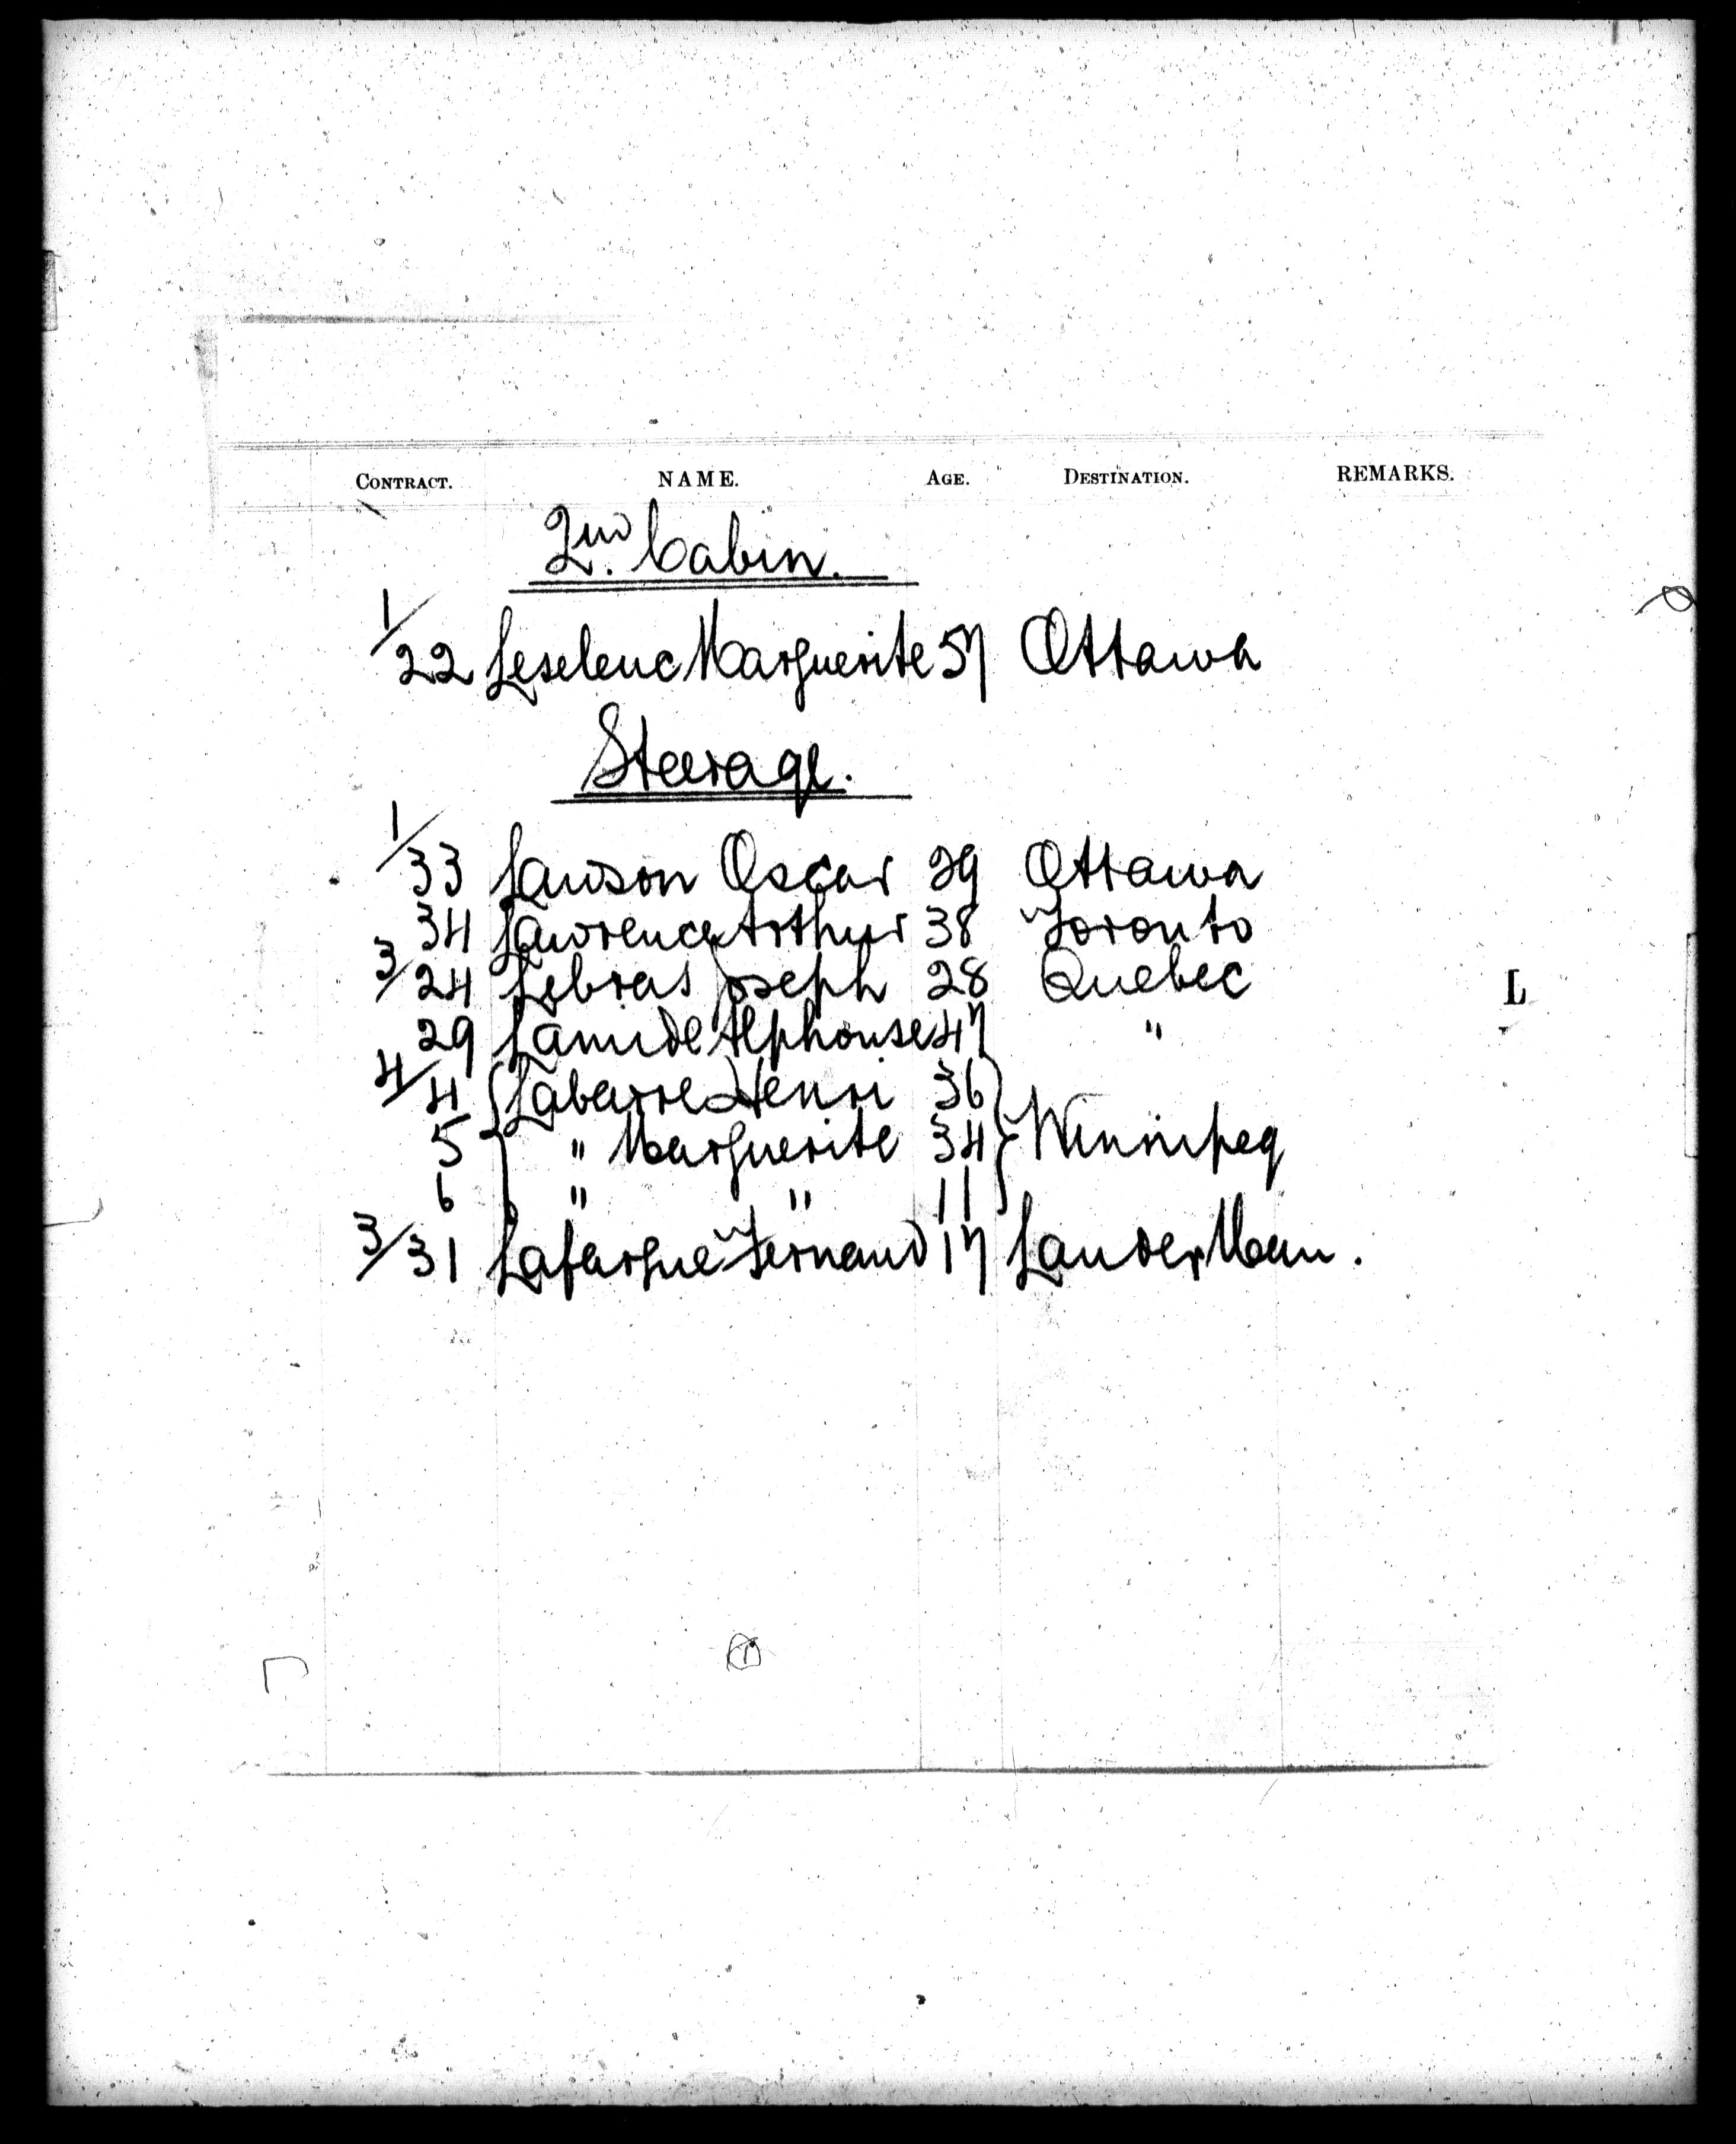 CONTRACT. NAME. AGE. DESTINATION. REMARKS.
2nd. Cabin.
1/22 Leseleuc Marguerite 57 Ottawa
Steerage.
1/33 Lawson Oscar 29 Ottawa
34 Lawrence Arthur 38 Toronto
3/24 Lebras Joseph 28 Quebec
L
29 Lamide Alphonse 47 "
4/4 Labarre Henri 36
5 " Marguerite 34 Winnipeg
6 " " 11
3/31 Lafargue Fernand 17 Lauder Man.